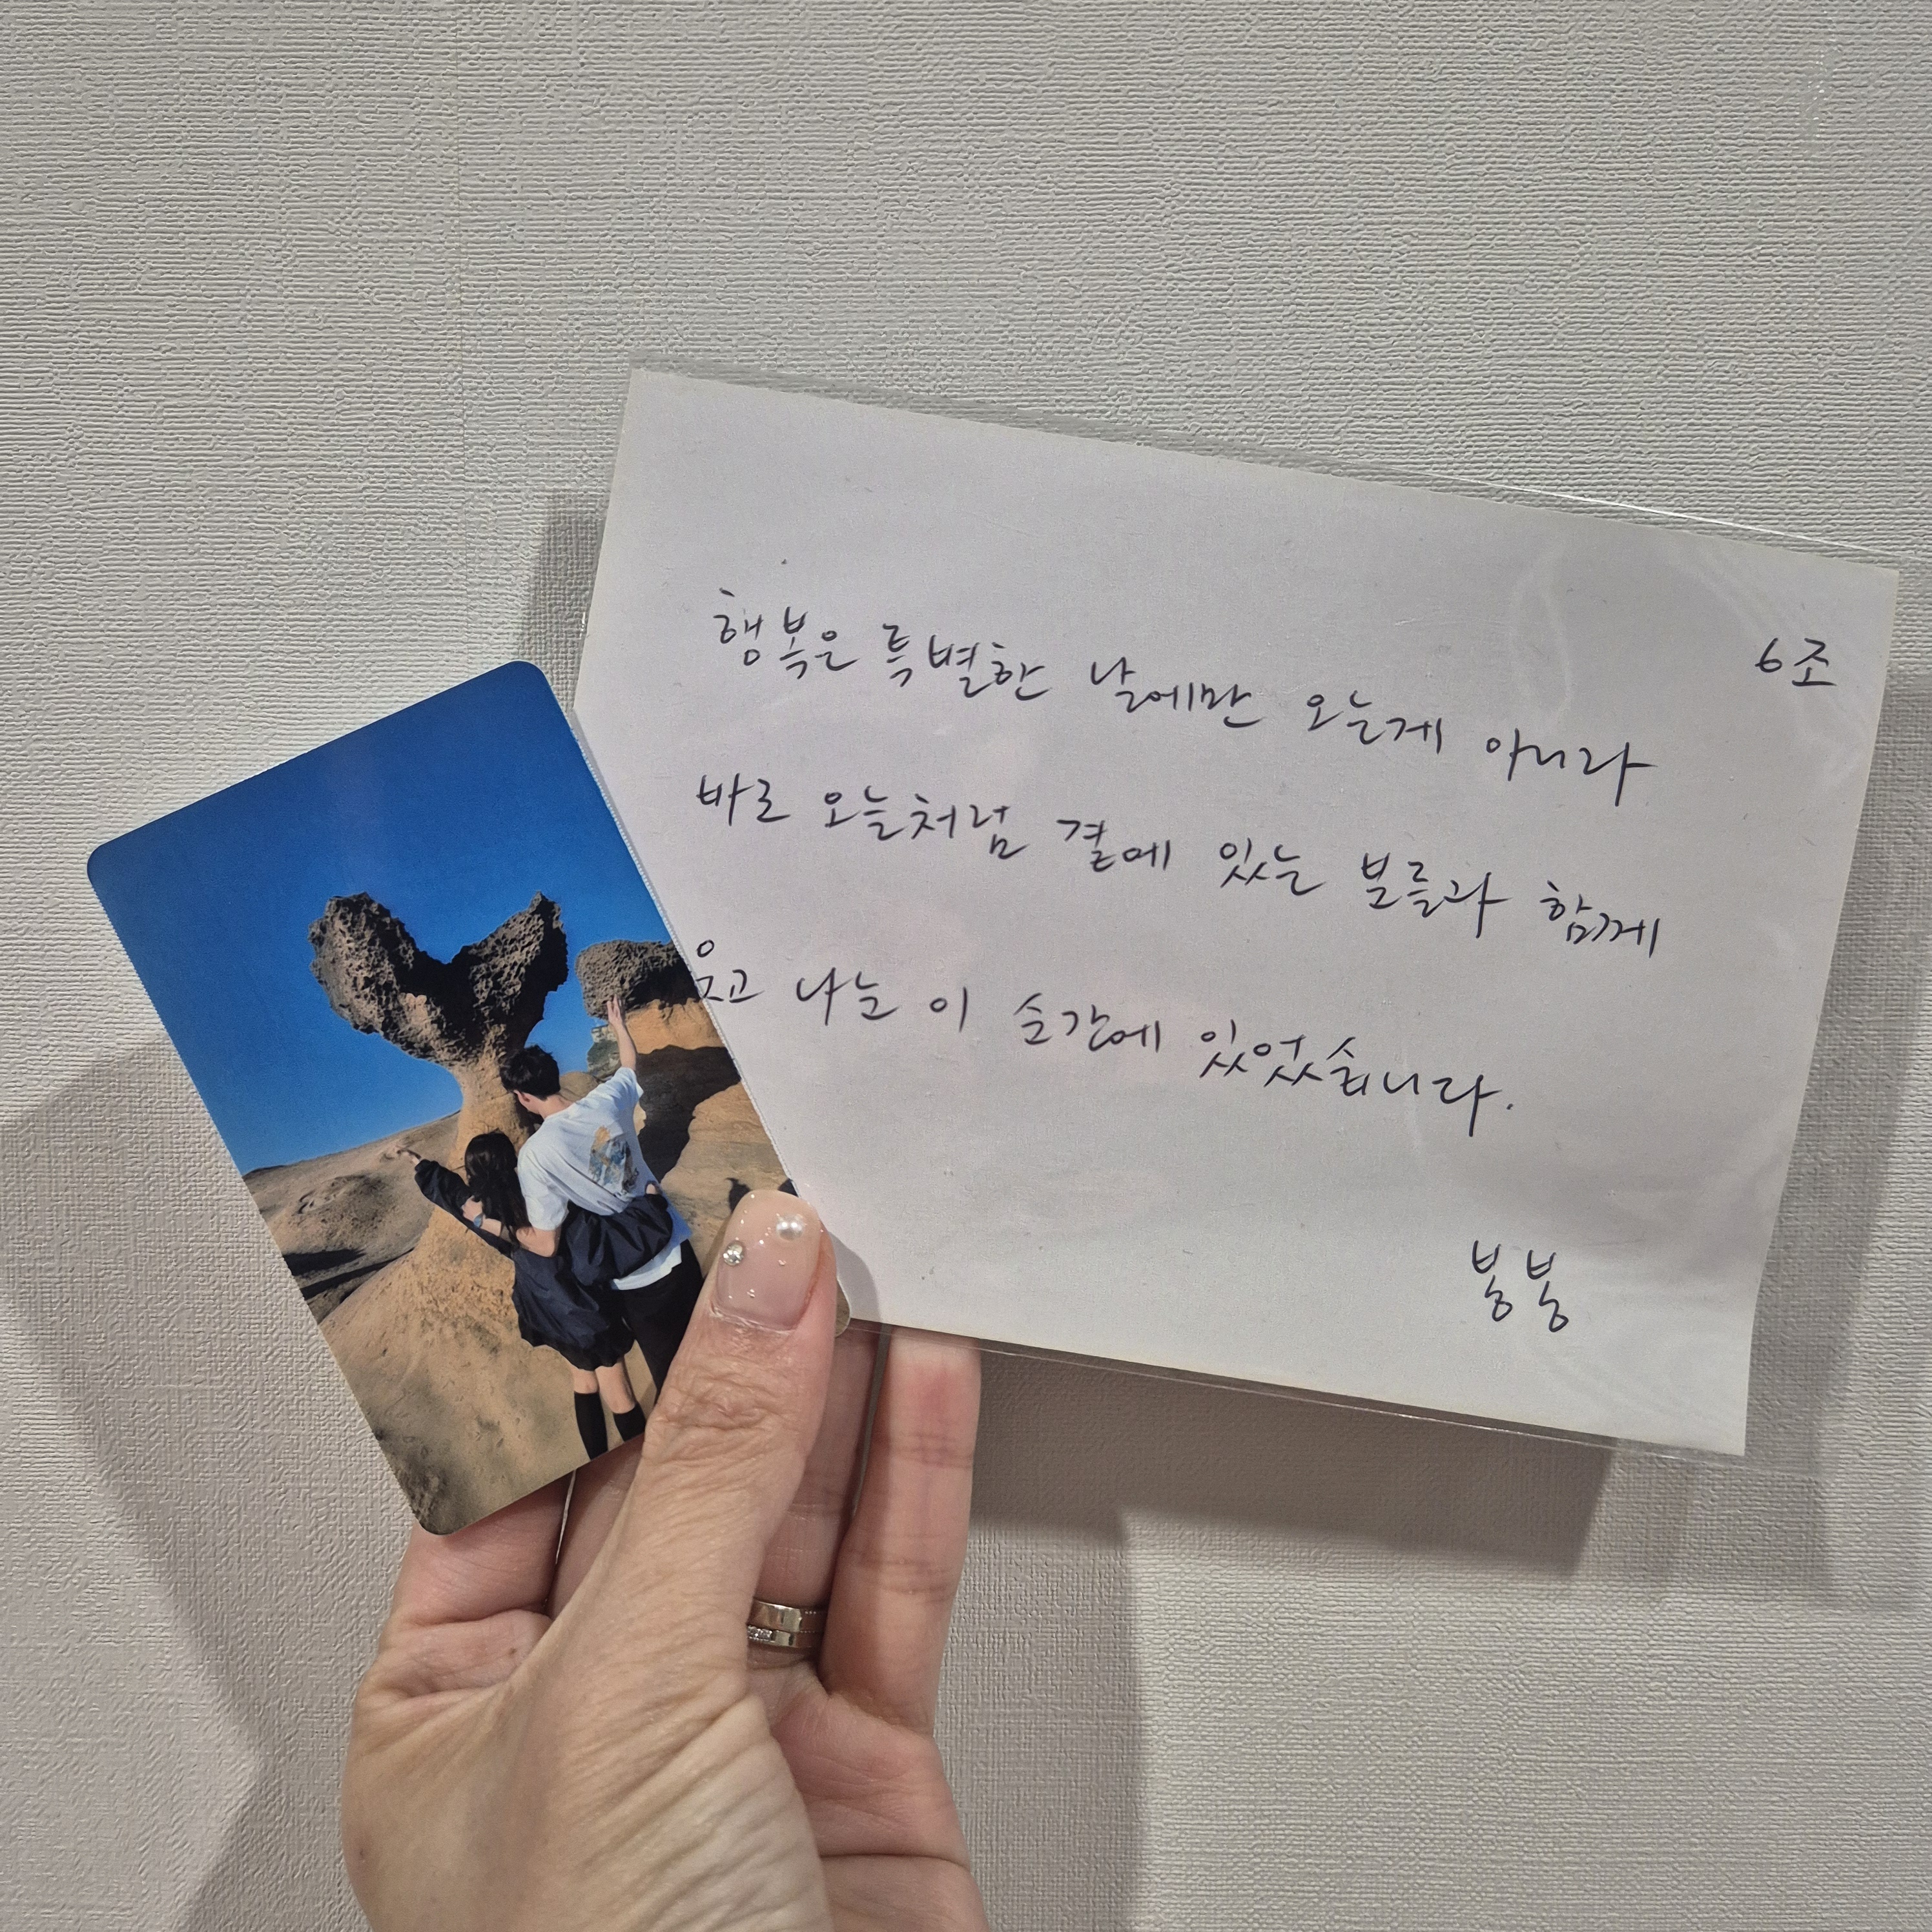 6조
행복은 특별한 날에만 오는게 아니라
바로 오늘처럼 곁에 있는 분들과 함께
웃고 나눈 이 순간에 있었습니다.
봉봉